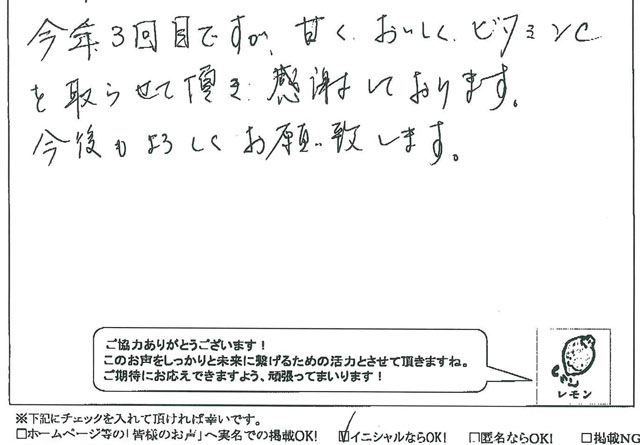 今年3回目ですが、甘く、おいしく、ビタミンC
を取らせて頂き、感謝しております。
今後もよろしくお願い致します。
ご協力ありがとうございます！
このお声をしっかりと未来に繋げるための活力とさせて頂きますね。
ご期待にお応えできますよう、頑張ってまいります！
レモン
※下記にチェックを入れて頂ければ幸いです。
□ホームページ等の「皆様のお声」へ実名での掲載OK! ☑イニシャルならOK! □匿名ならOK! □掲載NG